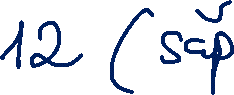 12 (sắp